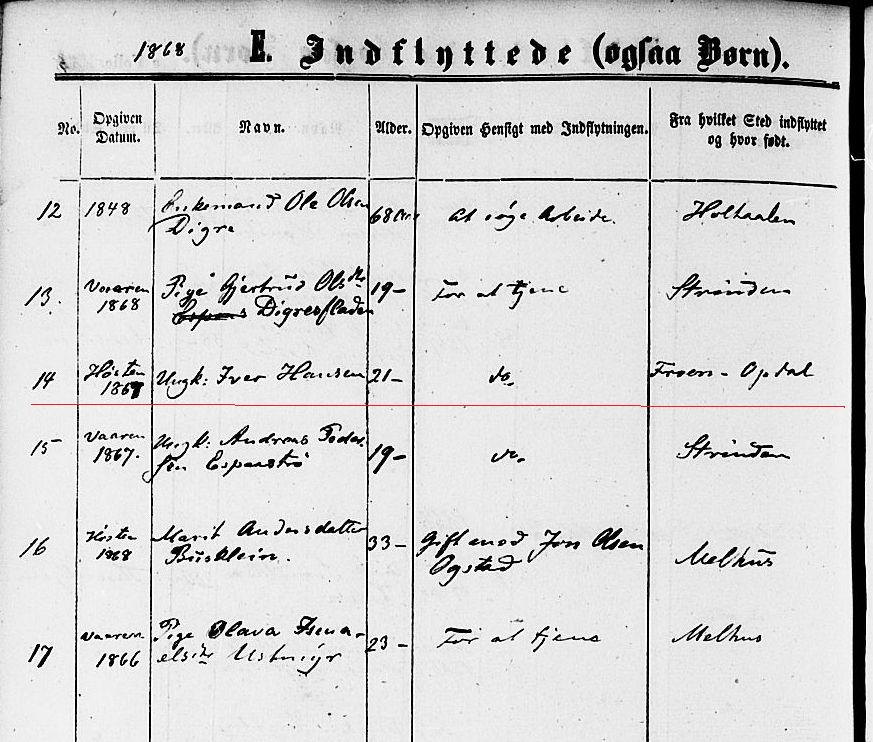 1868 E. Indflyttede (ogsaa Børn).
No. Opgiven Datum. Navn. Alder. Opgiven Hensigt med Indflytningen. Fra hvilket Sted indflyttet og hvor født.
12 1848 Enkemand Ole Olsen 68 At søge Arbeide. Holtaalen
Digre
13. Vaaren Pige Gjertrud Olsdtr 19- For at tjene Strinden
1868 Digresfladen
14 Høsten Ungk: Iver Hansen 21- do. Opdal
186
15 Vaaren Ungk: Andreas Peder- 19- do. Strinden
1867. sen Espaastrø
16 Høsten Marit Andersdatter 33- Gift med Jon Olsen Melhus
1868 Busklein. Ogstad
17 Vaaren Pige Olava Isma- 23- For at tjene Melhus
1866 elsdtr Ustmyr